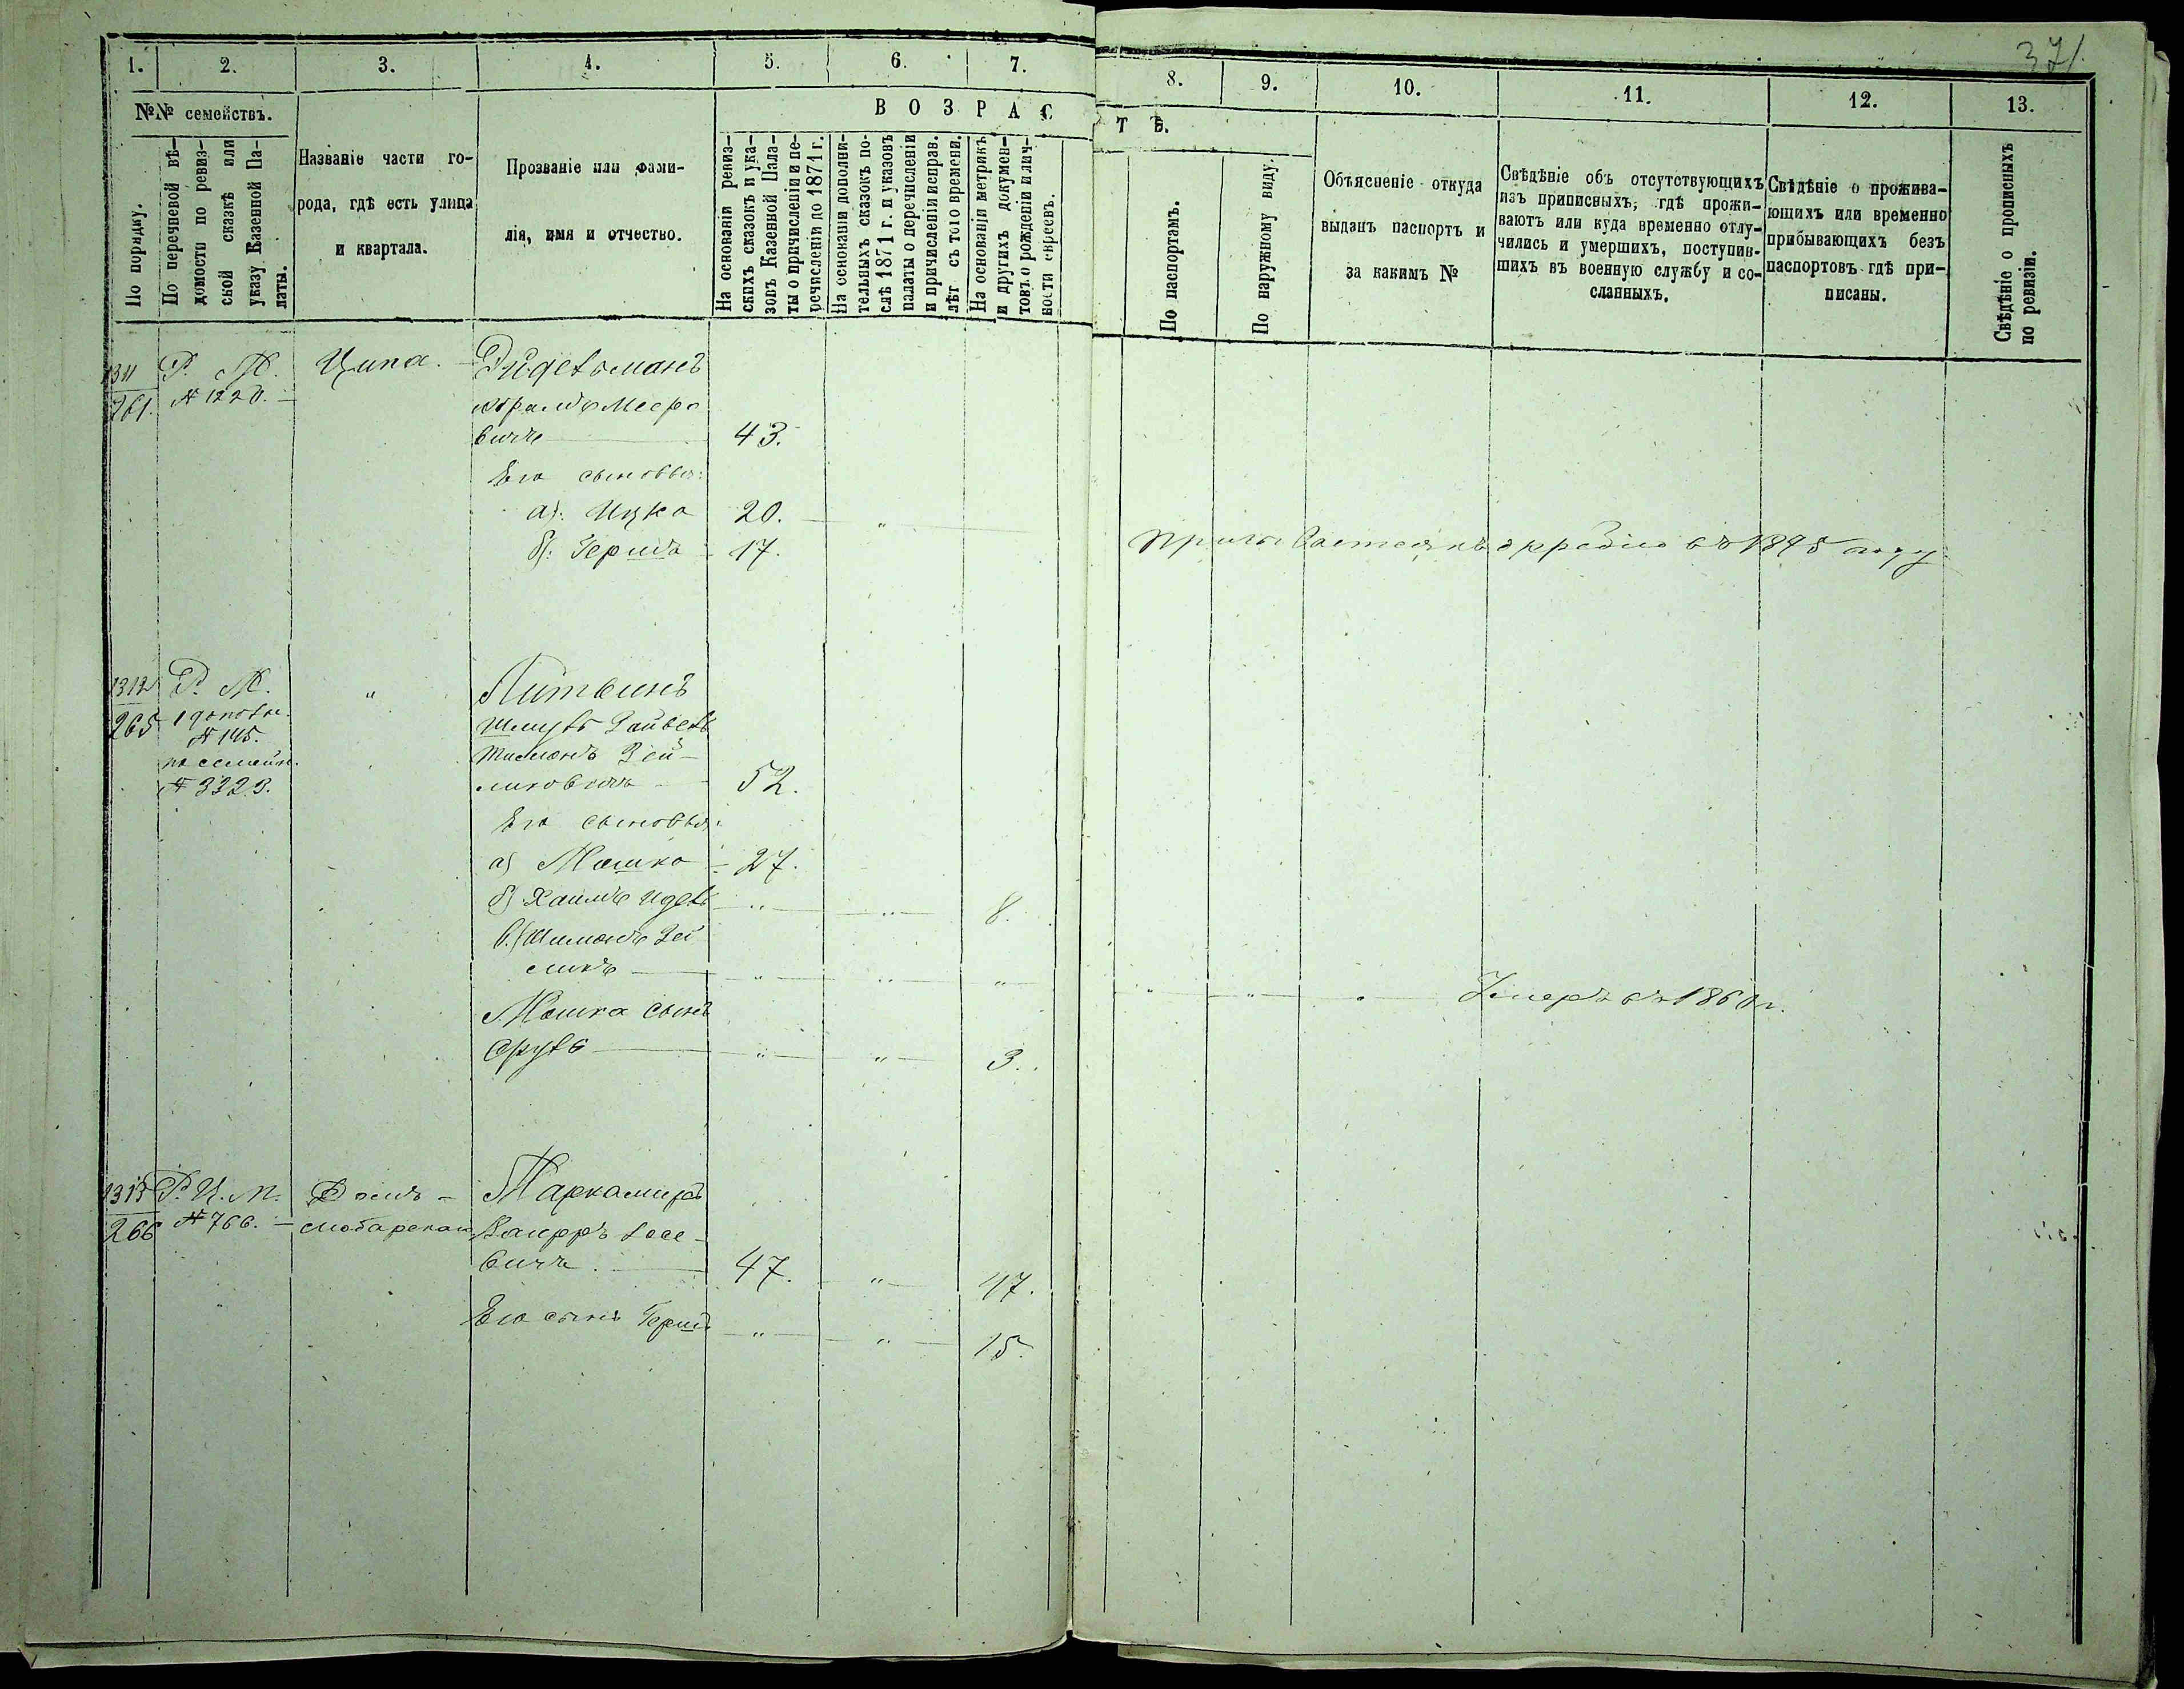 371
1. 2. 3. 4. 5. 6. 7. 8. 9. 10. 11. 12. 13.
№№ семействъ.
По порядку.
По перечневой вѣ-
домости по ревиз-
ской сказкѣ или
указу Казенной Па-
латы.
Названіе части го-
рода, гдѣ есть улица
и квартала.
Прозваніе или фами-
лія, имя и отчество.
ВОЗРАСТЪ.
На основаніи ревиз-
скихъ сказокъ и ука-
зовъ Казенной Пала-
ты о причисленіи и пе-
речисленіи до 1871 г.
На основаніи дополни-
тельныхъ сказокъ по-
слѣ 1871 г. и указовъ
палаты о перечисленіи
и причисленіи исправ.
лѣт съ того времени.
На основаніи метрикъ
и другихъ докумен-
товъ о рожденіи и лич-
ности евреевъ.
По паспортамъ.
По наружному виду.
Объясненіе откуда
выданъ паспортъ и
за какимъ №
Свѣдѣніе объ отсутствующихъ
изъ приписныхъ, гдѣ прожи-
ваютъ или куда временно отлу-
чились и умершихъ, поступив-
шихъ въ военную службу и со-
сланныхъ.
Свѣдѣніе о прожива-
ющихъ или временно
прибывающихъ безъ
паспортовъ гдѣ при-
писаны.
Свѣдѣніе о прописныхъ
по ревизіи.
1311 Р. М. Цыпа.
261. № 1220.
вичъ 43.
Его сыновья:
а). Ицко 20. "
б). Гершъ 17. въ 1875 году
1312 Р. М. " Литвинъ
265 1 дополн. Шмуль
№ 145.
по семейн.
№ 3323. 52.
Его сыновья:
а) Мошко 27.
б) Хаимъ Идель " " 8.
в) Шимонъ Зей
ликъ " " " " " " Умеръ въ 1860 г.
Мошка сынъ
Сруль " " 3.
1313 Р. И. М. Форш-
266 № 766.
вичъ. 47. " 47.
Его сынъ Гершъ " " 15.